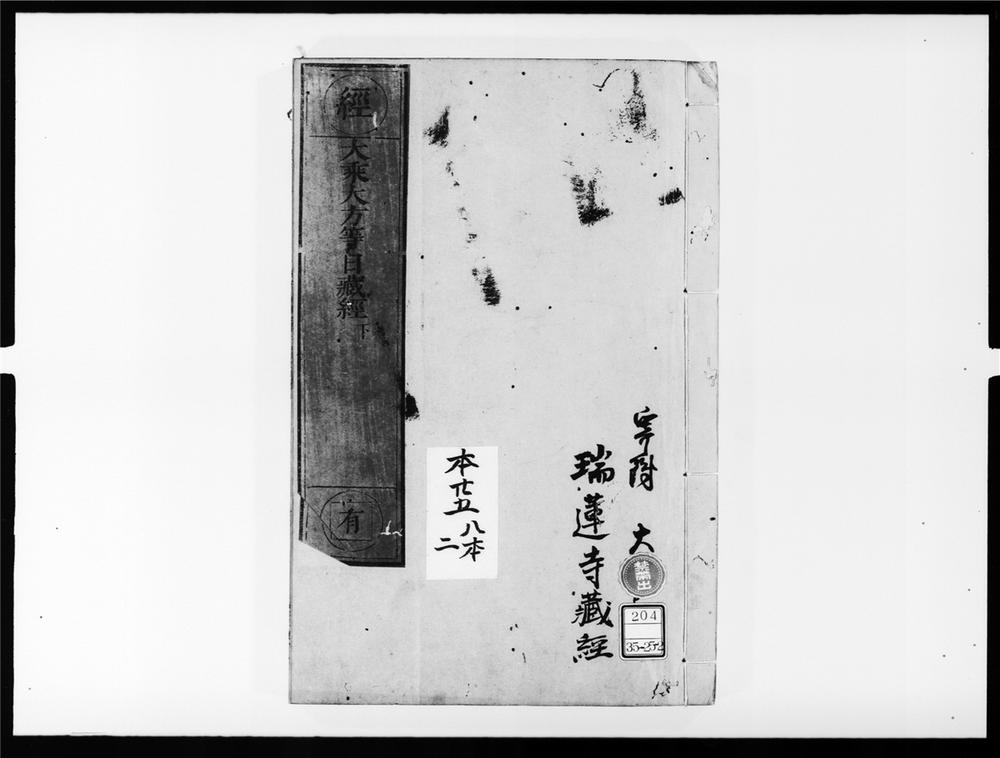 寄附 大
瑞蓮寺藏經
禁帶出
204
35-252
本廿五
八本
二
經
大乘大方等日藏經 下
有